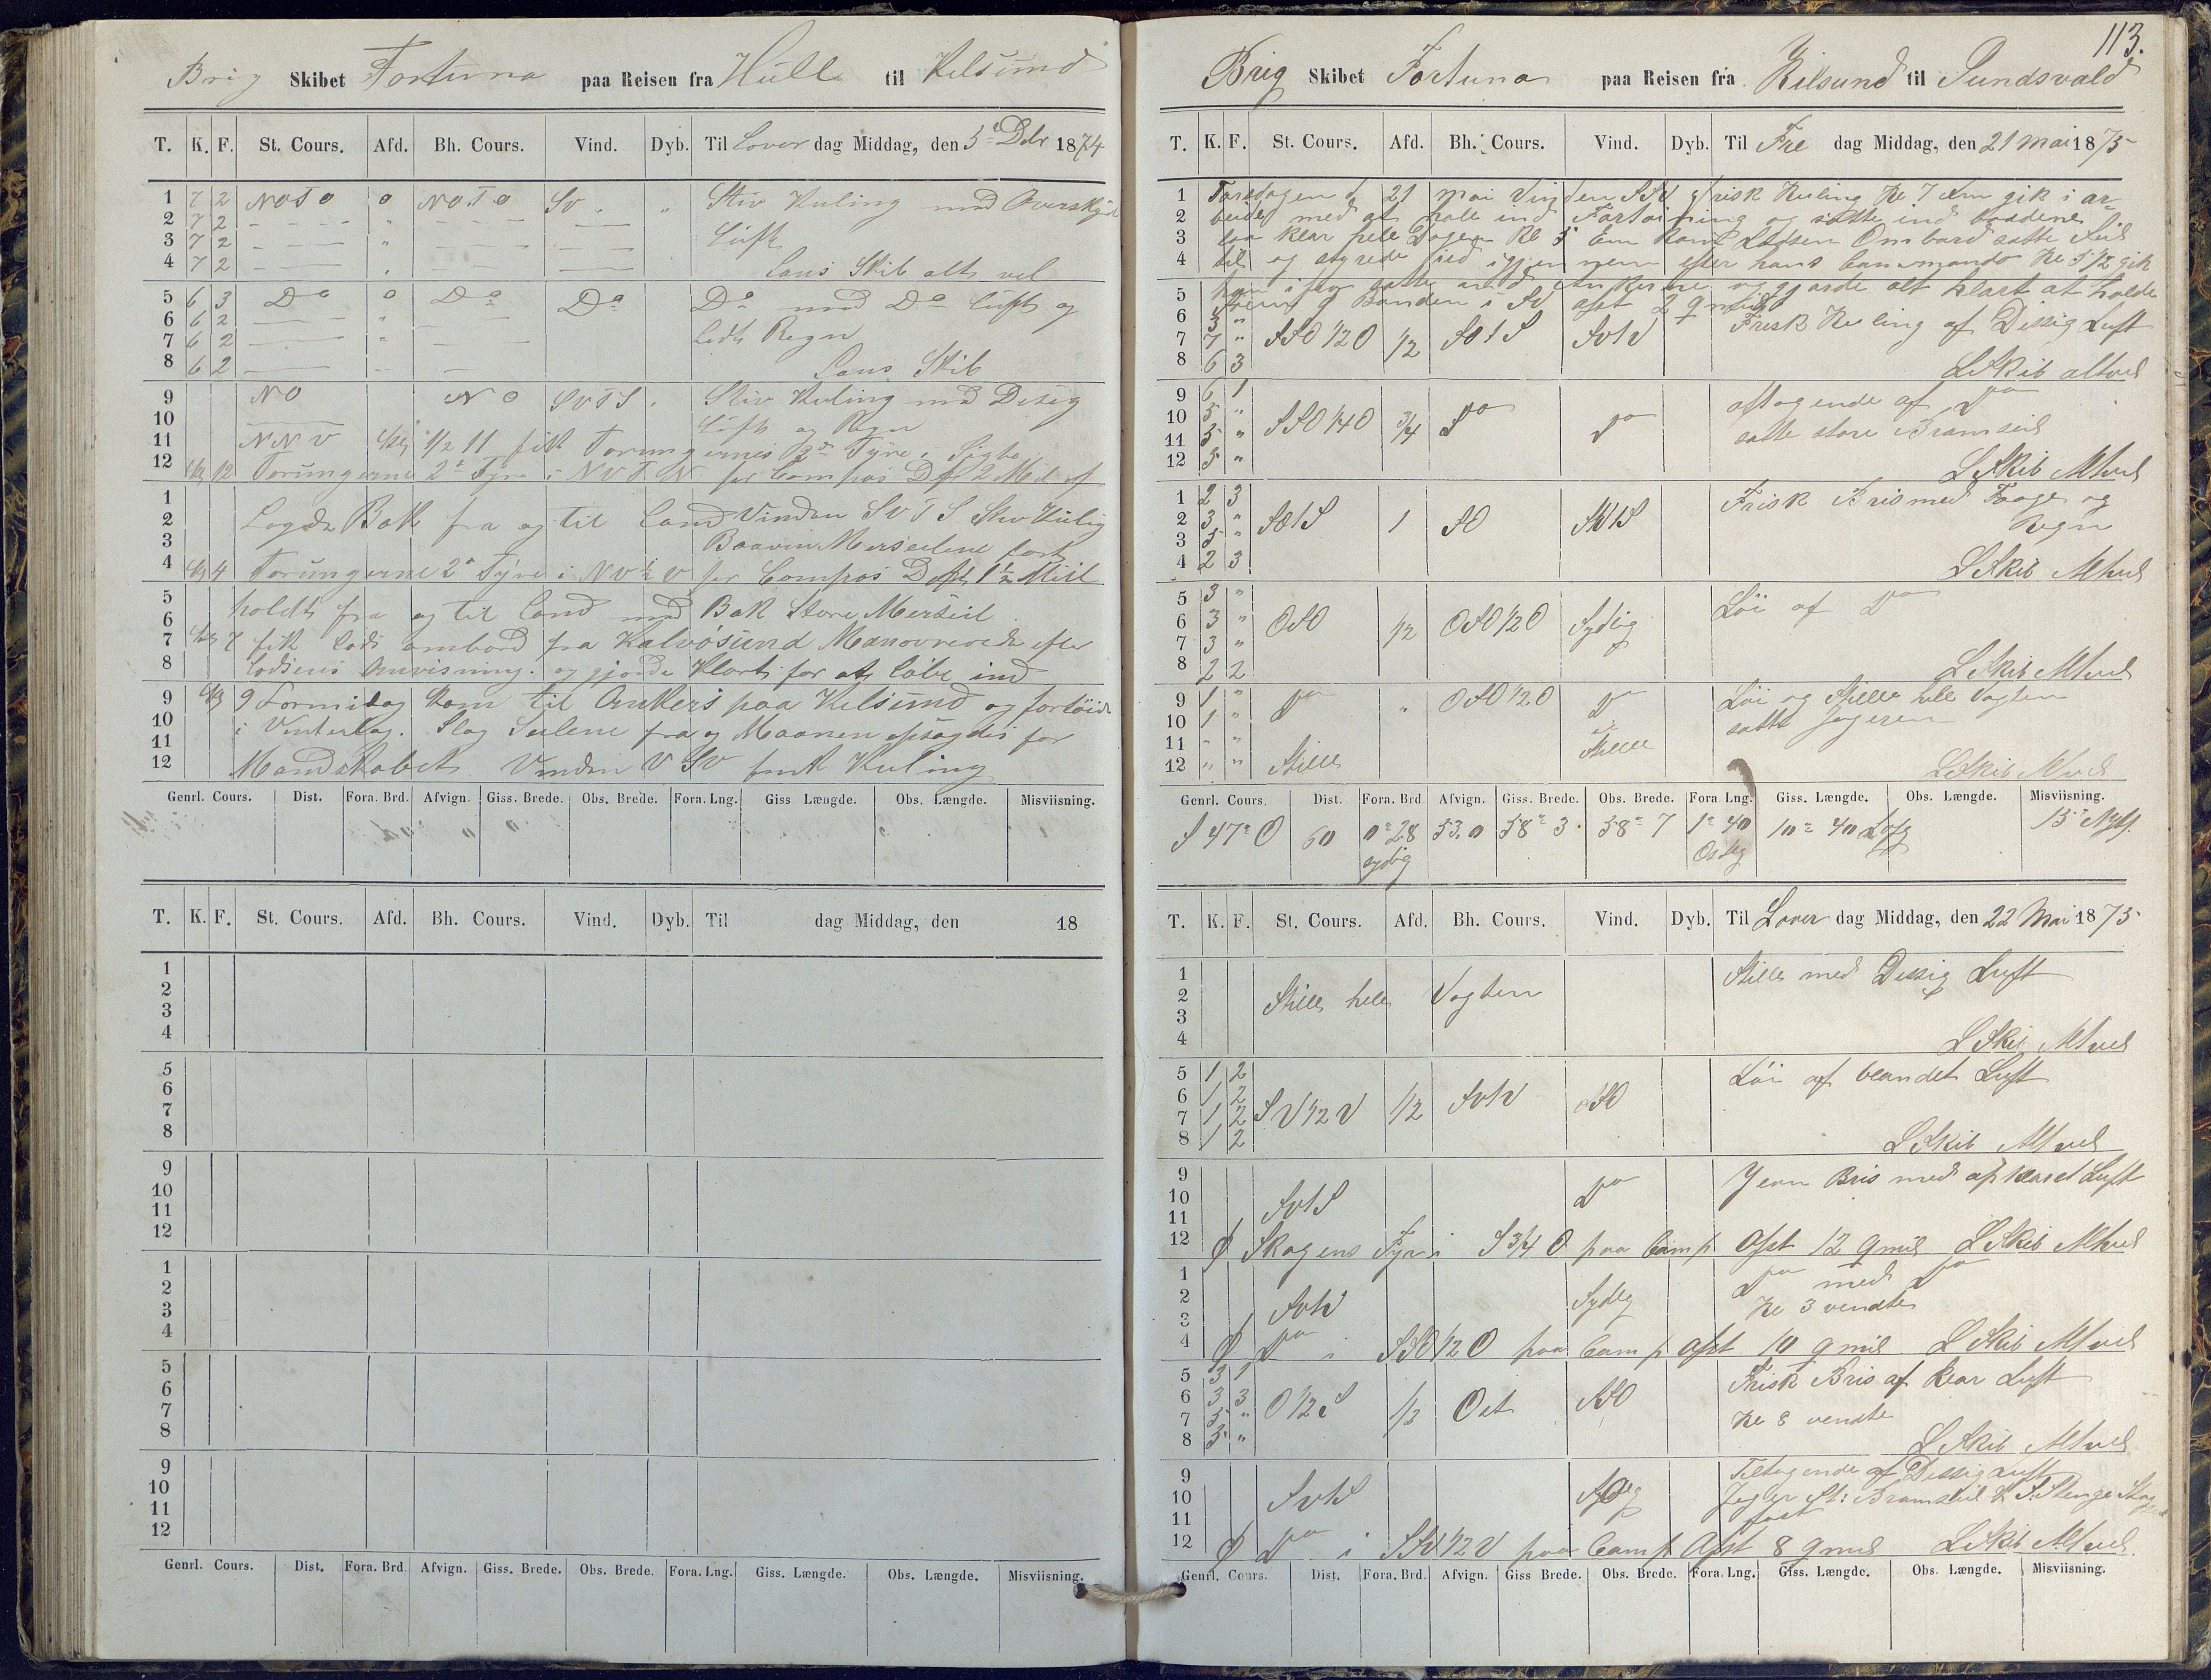 Brig Skibet Fortuna paa Reisen fra Hull til Kilsund
T. K. F. St. Cours. Afd. Bh. Cours. Vind. Dyb. Til Löver dag Middag, den 5te Debr 1874
1 7 2 NOTO 0 NOTO SV " Stiv Kuling med Overskyet
2 7 2 "
3 7 2 " Luft
4 7 2 " Lens Skib alt vel
5 6 3 Do 0 Do Do Do med Do Luft og
6 6 2 "
7 6 2 " lidt Regn
8 6 2 Lens Skib
9 NO NO SVTS Stiv Kuling med Disig
10 Luft og Regn
11 NNV Kl 1/2 11 fik Torungernes 2de Fyre i Sigte
12 Kl 12 Torungerne 2de Fyre i NVTN per Compas Dst 2 Mil af
1
2 Lagde Bak fra og til Land Vinden SVTS Stiv Kulig
3 Baaven Merseilene fast
4 Kl 4 Torungerne 2de Fyre i NV 1/2 V per Compas Dst 1 1/2 Miil
5 holdt fra og til Land med Bak Store Merseil
6
7 Kl 7 fik Lods ombord fra Kalvösund Manovrerede efter
8 Lodsens Anvisning. og gjorde Klart for at Löbe ind
9 Kl 9 Formidag kom til Ankers paa Kilsund og fortöide
10 i Vinterlag. Slog Seilene fra og Maanen opsagdes for
11
12 Mandskabet Vinden V SV frisk Kuling
Genrl. Cours. Dist. Fora. Brd. Afvign. Giss. Brede. Obs. Brede. Fora. Lng. Giss Længde. Obs. Længde. Misviisning.
T. K. F. St. Cours. Afd. Bh. Cours. Vind. Dyb. Til dag Middag, den 18
1
2
3
4
5
6
7
8
9
10
11
12
1
2
3
4
5
6
7
8
9
10
11
12
Genrl. Cours. Dist. Fora. Brd. Afvign. Giss. Brede. Obs. Brede. Fora. Lng. Giss. Længde. Obs. Længde. Misviisning.
113.
Brig Skibet Fortuna paa Reisen fra Kilsund til Sundsvald
T. K. F. St. Cours. Afd. Bh. Cours. Vind. Dyb. Til Fre dag Middag, den 21 Mai 1875
1 Torsdagen d 21 mai Vinden SSV frisk Kuling Kl 7 Fm gik i ar-
2 beide med at hale ind Fortöining og sætte ind baadene
3 laa klar hele Dagen Kl 5 Em kom Lodsen Ombord satte Seil
4 til og styrede ud igjennem efter hans Commando Kl 5 1/2 gik
5 han i fra satte ind Ankerne og gjorde alt klart at holde
6 3 " i SV afst 2 qmiil
7 7 " SSO 1/2 O 1/2 SO t S SV t V Frisk Kuling af Dissig Luft
8 6 3 L Skib altvel
9 6 1 aftagende af Do
10 5 " SSO 1/4 O 3/4 Do Do
11 5 " satte store Bramseil
12 5 " L Skib Altvel
1 2 3 Frisk Bris med Taage og
2 3 " SO t S 1 SO SV t S Regn
3 5 "
4 2 3 L Skib Altvel
5 3 " Löi af Do
6 3 " OSO 1/2 OSO 1/2 O Sydlig
7 3 "
8 2 2 L Skib Altvel
9 1 " Do " OSO 1/2 O Do Löi og Stille hele Vagten
10 1 " satte Jageren
11 " " Stille
12 " " Stille L Skib Alvel
Genrl. Cours. Dist. Fora. Brd. Afvign. Giss. Brede. Obs. Brede. Fora. Lng. Giss. Længde. Obs. Længde. Misviisning.
S 47° O 60 0° 28 sydlig 53.0 58° 3 58° 7 1° 40 Ostlig 10° 40
T. K. F. St. Cours. Afd. Bh. Cours. Vind. Dyb. Til Löver dag Middag, den 22 Mai 1875
1 Stille med Dissig Luft
2 Stille hele Vagten
3
4 L Skib Altvel
5 1 2 Löi af blandet Luft
6 1 2
7 1 2 SV 1/2 V 1/2 SV t V SSO
8 1 2 L Skib Altvel
9 Jevn Bris med opklaret Luft
10 SV t S Do
11
12 Skagens Fyr i S 3/4 O paa Comp Afst 12 qmiil L Skib Altvel
1 Do med Do
2 SV t V Sydlig
3 Kl 3 vendte
4 Do i SSO 1/2 O paa Comp Afst 10 qmiil L Skib Altvel
5 3 1 Frisk Bris af klar Luft
6 3 3 O 1/2 S 1/2 Ost SSO
7 5 " Kl 8 vendte
8 5 " L Skib Altvel
9 Tiltagende af Dissig Luft
10 SV t S Jager St: Bramseil & S: Stenge Stag
11 fast
12 Do i SSV 1/2 V paa Comp Afst 8 qmiil L Skib Altvel
Genrl. Cours. Dist. Fora. Brd. Afvign. Giss Brede. Obs. Brede. Fora. Lng. Giss. Længde. Obs. Længde. Misviisning.